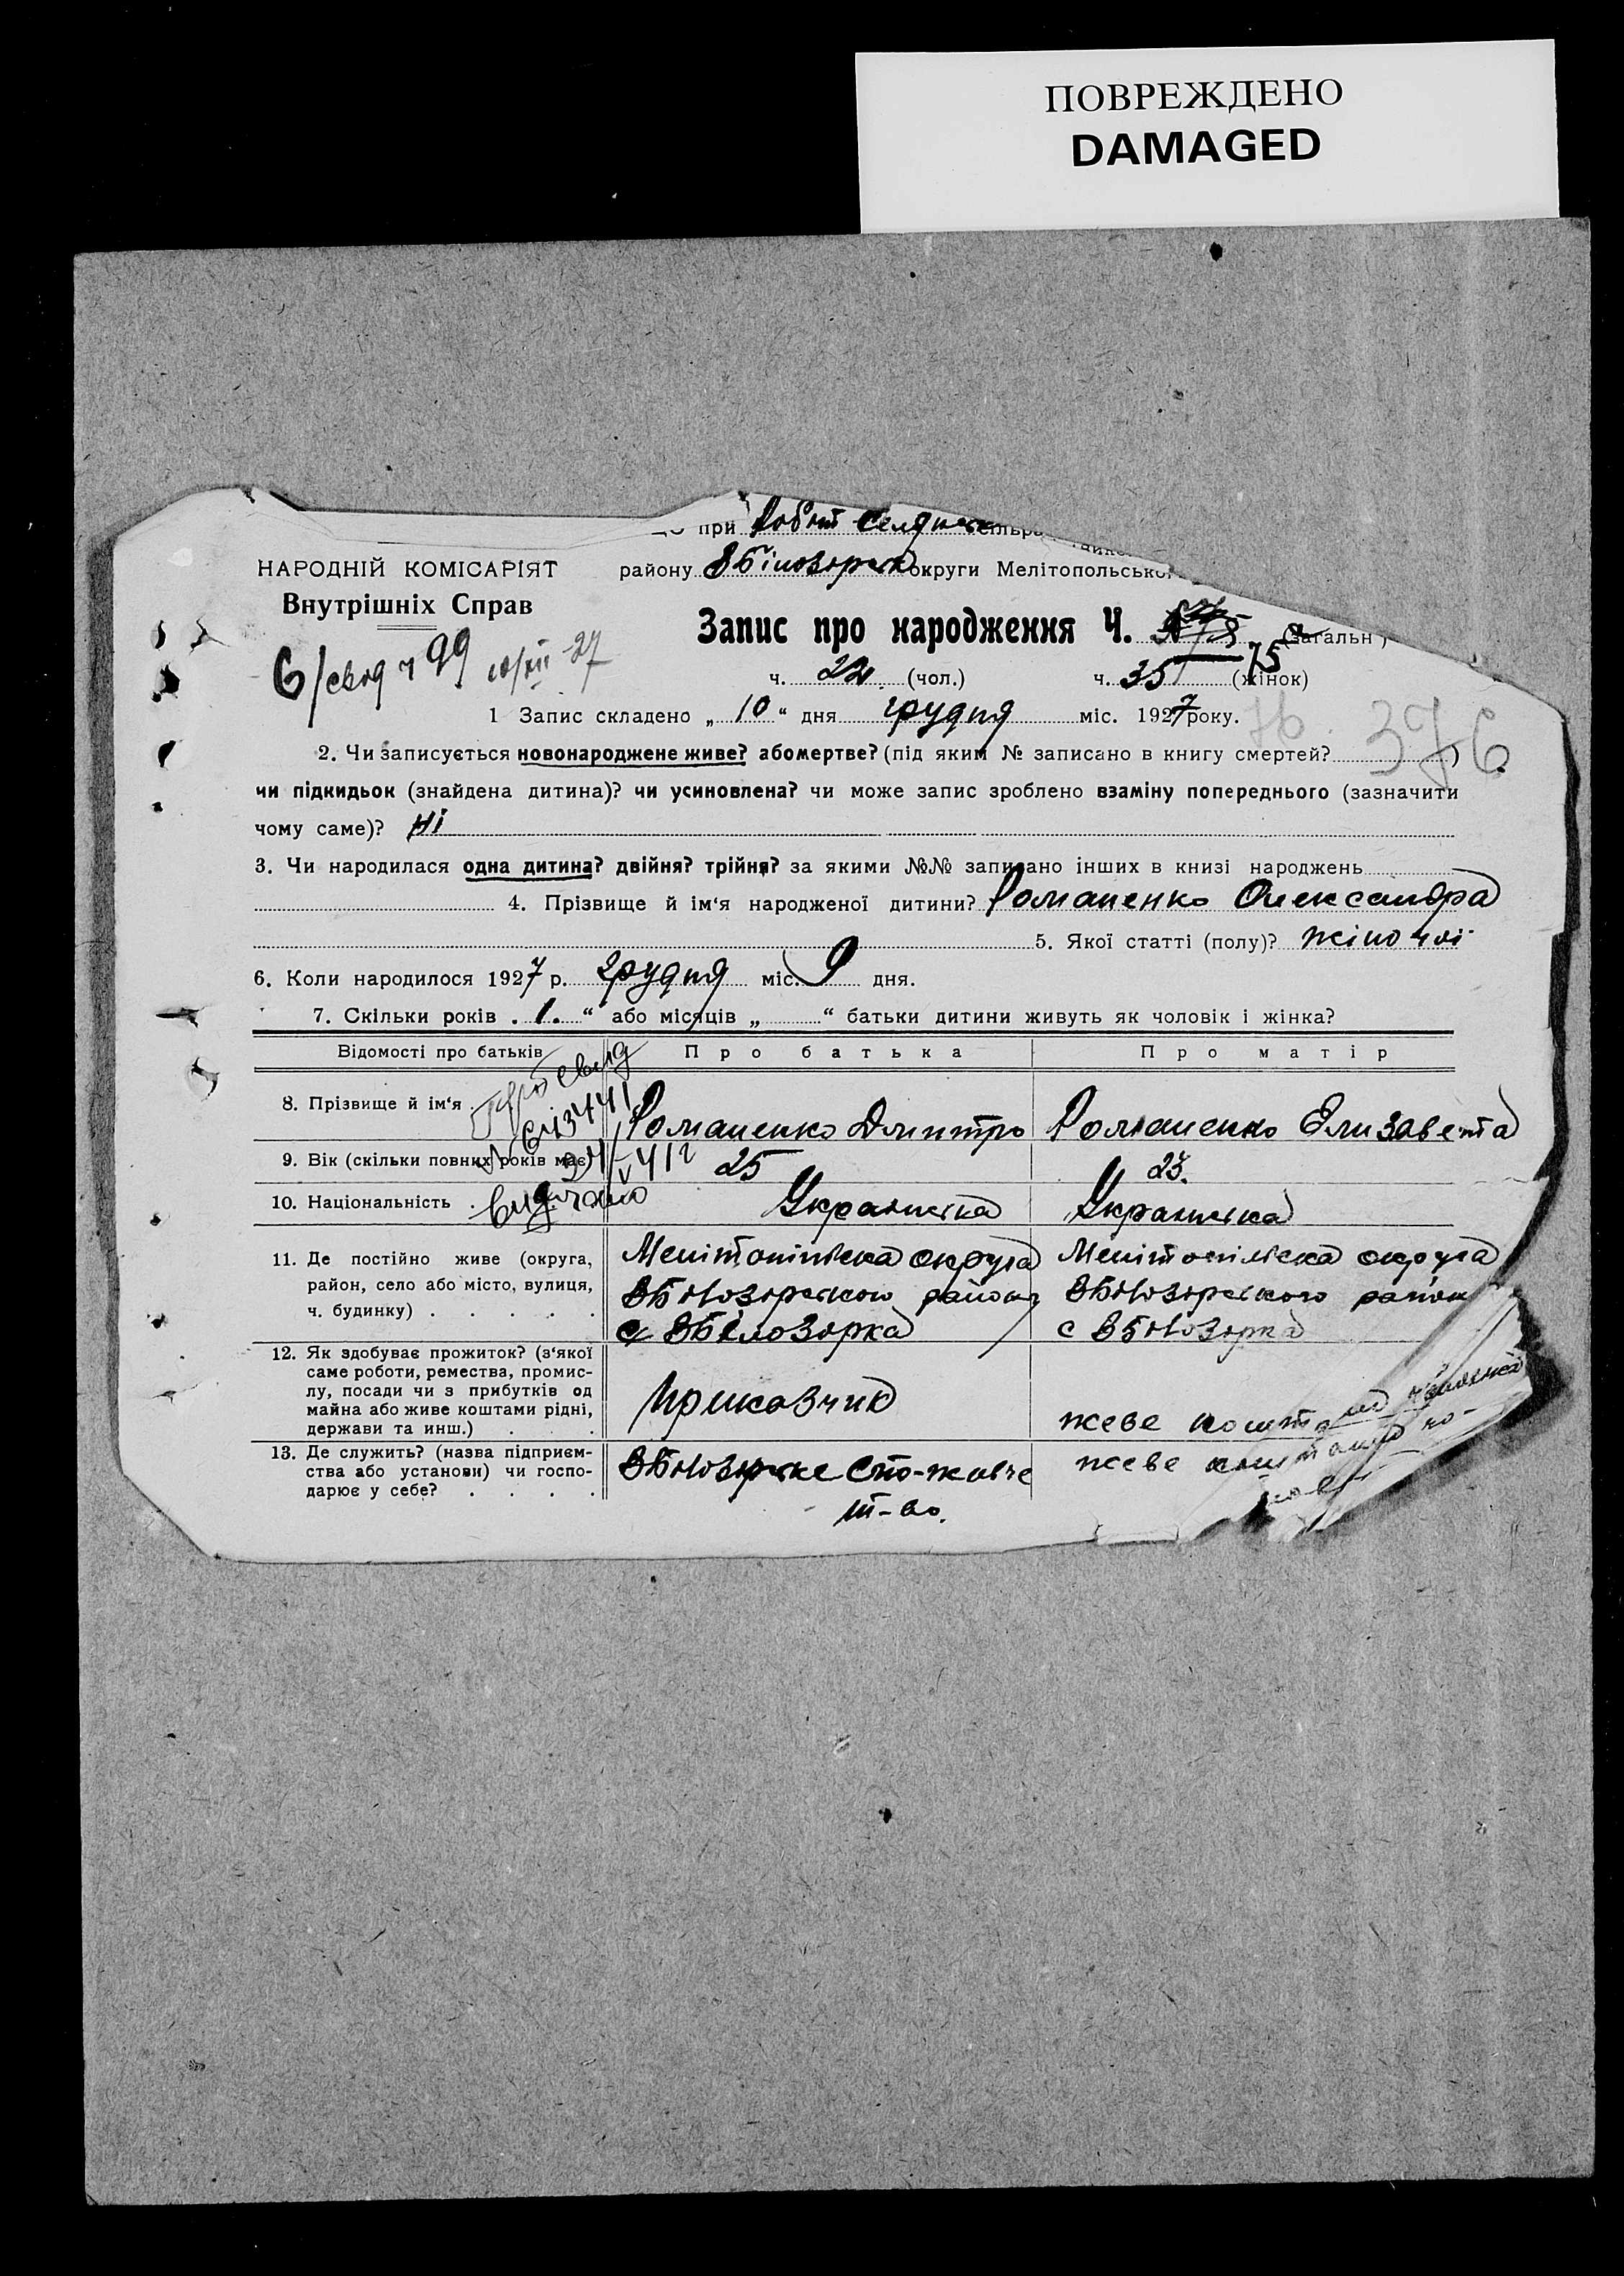 ПОВРЕЖДЕНО
DAMAGED
при Робит
району ВБілозірськ округи Мелітопольсько
НАРОДНІЙ КОМІСАРІЯТ
Внутрішніх Справ
Запис про народження Ч. (загальн)
75
6/свид ч 99 10/XII-27
ч. 24 (чол.) ч. 35 (жінок)
1 Запис складено „ 10 “ дня грудня міс. 1927 року.
76. 376
2. Чи записується новонароджене живе? або мертве? (під яким № записано в книгу смертей? )
чи підкидьок (знайдена дитина)? чи усиновлена? чи може запис зроблено взаміну попереднього (зазначити
чому саме)? Ні
3. Чи народилася одна дитина? двійня? трійня? за якими №№ записано інших в книзі народжень
4. Прізвище й ім‘я народженої дитини? Романенко Олександра
5. Якої статті (полу)? жіночої
6. Коли народилося 1927 р. грудня міс. 9 дня.
7. Скільки років . 1. “ або місяців „ “ батьки дитини живуть як чоловік і жінка?
Відомості про батьків Про батька Про матір
8. Прізвище й ім‘я . Романенко Дмитро Романенко Елизавета
9. Вік (скільки повних років має) 25 23.
10. Національність . Украинска Украинска
видано
11. Де постійно живе (округа,
район, село або місто, вулиця,
ч. будинку) . . . . .
Мелітопільска округа
ВБілозірського району
с ВБелозорка
Мелітопільска округа
ВБілозірського району
с ВБілозірка
12. Як здобуває прожиток? (з‘якої
саме роботи, ремества, промис-
лу, посади чи з прибутків од
майна або живе коштами рідні,
держави та инш.) . . .
Приказчик
жеве коштами чоловіка
13. Де служить? (назва підприєм-
ства або установи) чи госпо-
дарює у себе? . . . .
ВБілозірске Спо-живче
т-во.
жеве коштами чо-